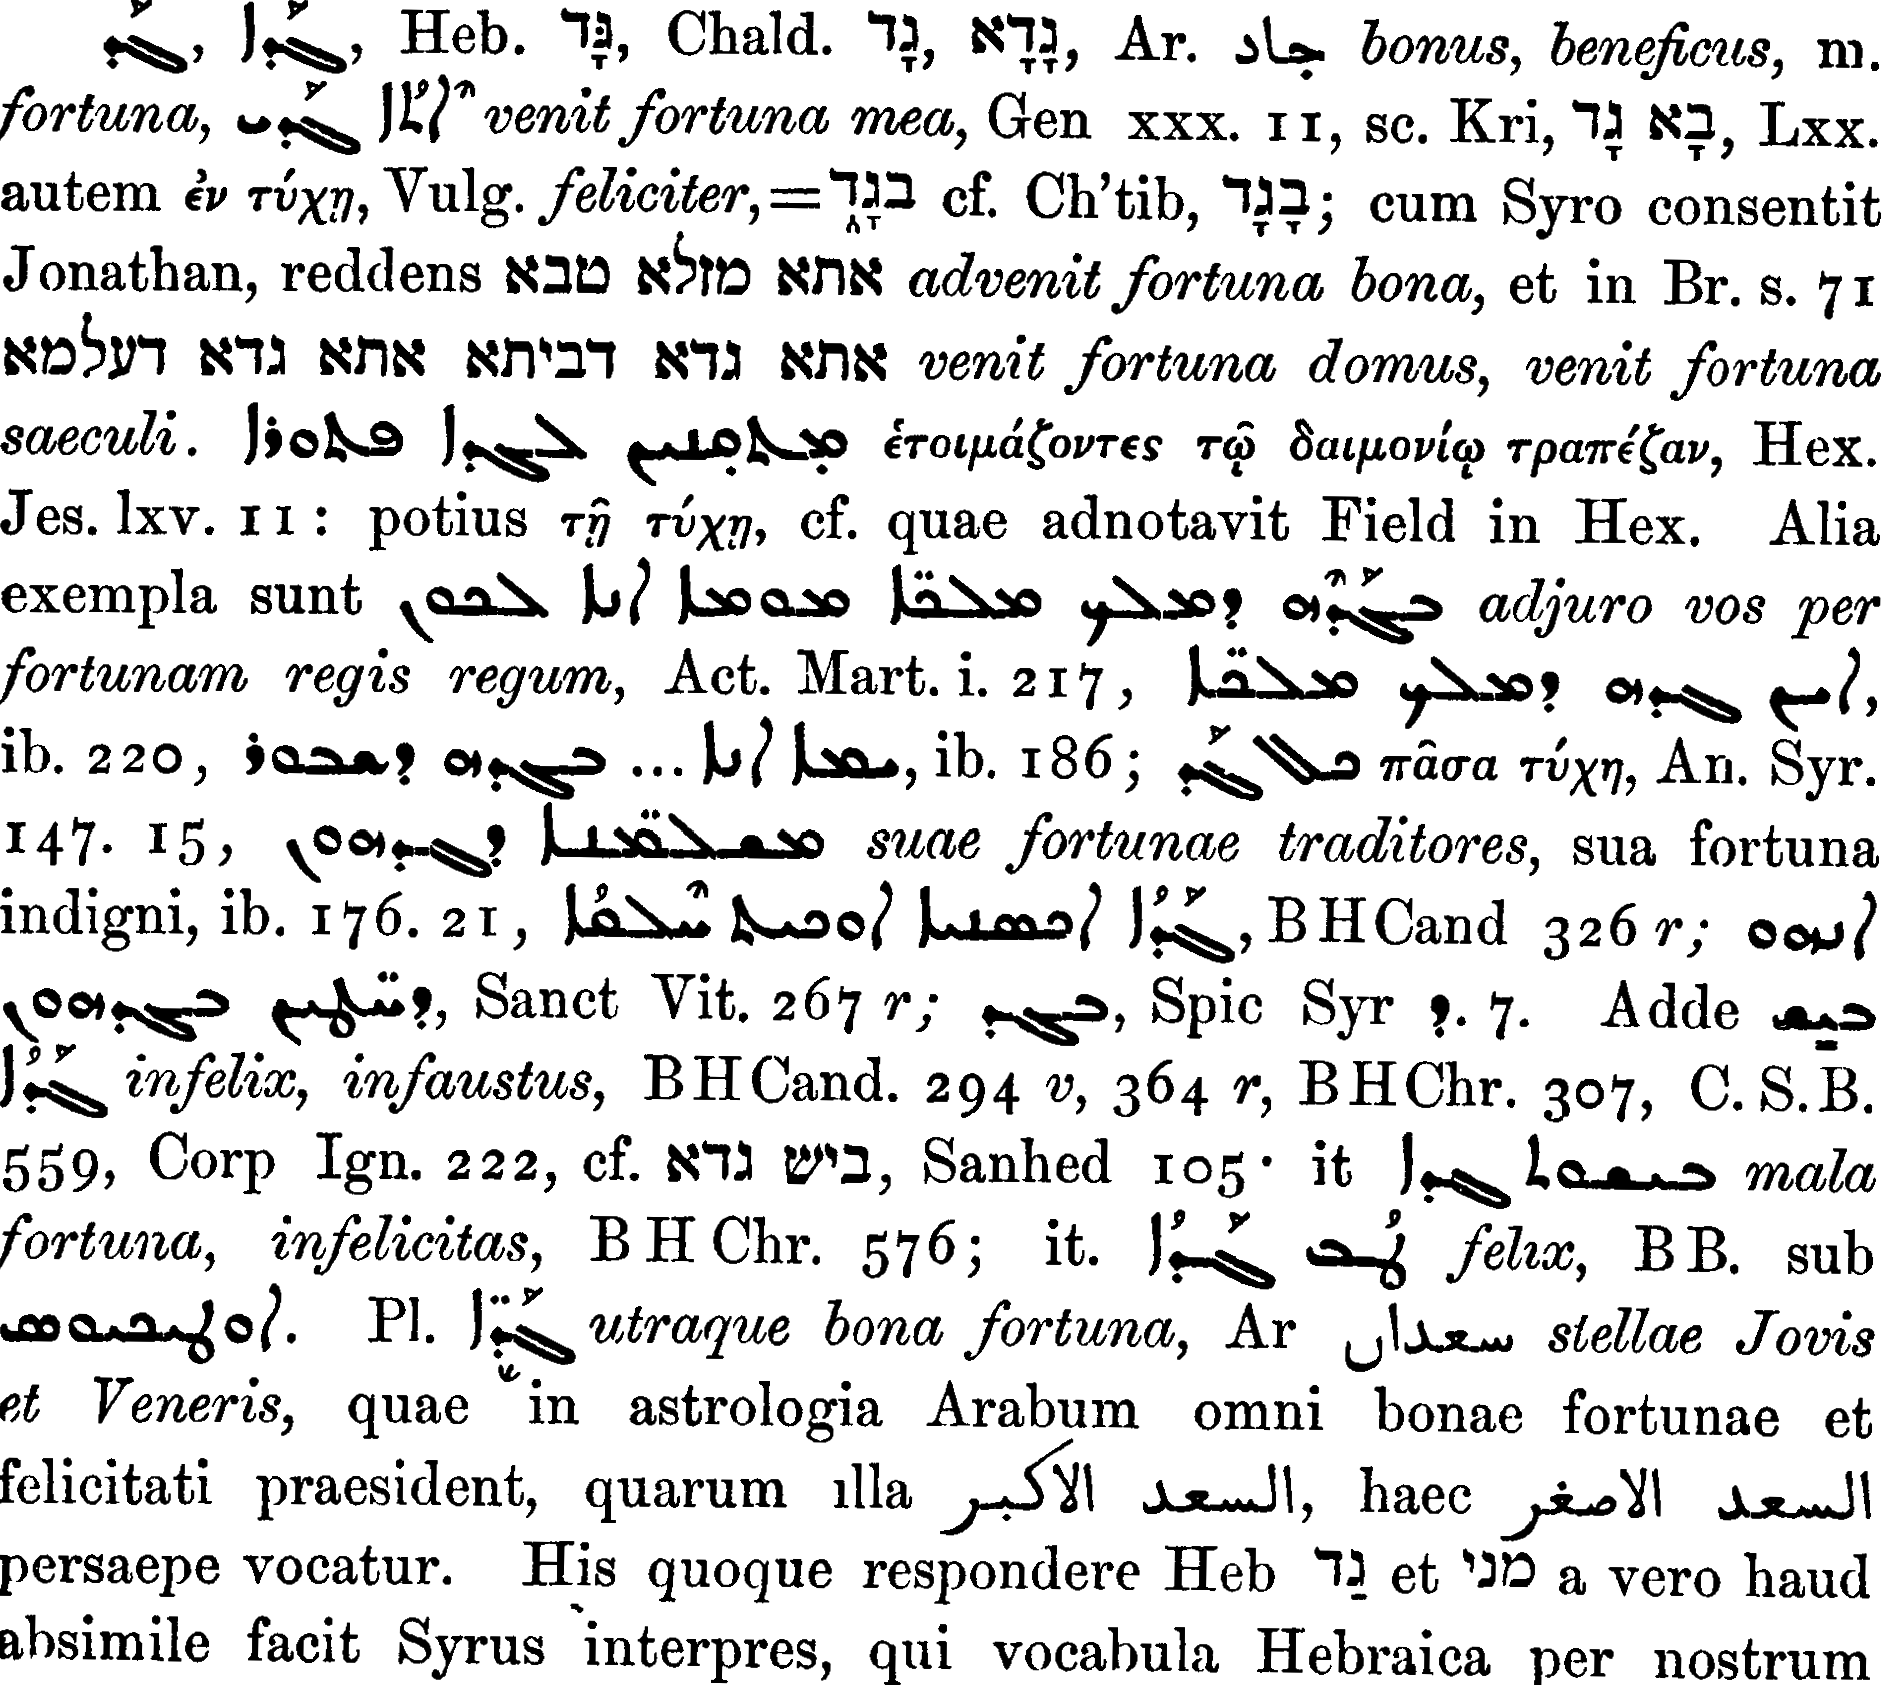 ܓܰܕ, ܓܰܕܐ, Heb. גָּד, Chald. גָד, גָדָא, Ar. جاد bonus, beneficus, m.
fortuna, ܐܬܳܐ ܓܰܕܝ venit fortuna mea, Gen xxx. 11, sc. Kri, בָא גָד, Lxx.
autem ἐν τύχῃ, Vulg. feliciter, = בגָד cf. Ch'tib, בָגָד; cum Syro consentit
Jonathan, reddens אתא מזלא טבא advenit fortuna bona, et in Br. s. 71
אתא גדא דביתא אתא גדא דעלמא venit fortuna domus, venit fortuna
saeculi. ܡܬܩܢܝܢ ܠܓܕܐ ܦܬܘܪܐ ἑτοιμάζοντες τῷ δαιμονίῳ τραπέζαν, Hex.
Jes. lxv. 11: potius τῇ τύχῃ, cf. quae adnotavit Field in Hex. Alia
exempla sunt ܒܓܰܕܗ ܕܡܠܟ ܡܠܟ̈ܐ ܡܘܡܐ ܐܢܐ ܠܟܘܢ adjuro vos per
fortunam regis regum, Act. Mart. i. 217, ܐܝܢ ܓܕܗ ܕܡܠܟ ܡܠܟ̈ܐ,
ib. 220, ܝܡܐ ܐܢܐ ... ܒܓܕܗ ܕܫܒܘܪ, ib. 186; ܟܠ ܓܰܕ πᾶσα τύχη, An. Syr.
147. 15, ܡܫܠܡ̈ܢܐ ܕܓܕܗܘܢ suae fortunae traditores, sua fortuna
indigni, ib. 176. 21, ܓܰܕܳܐ ܐܟܣܢܝܐ ܐܘܟܝܬ ܚܠܦܳܐ, BHCand 326 r; ܐܢܗܘ
ܕܚܛܝܢ ܒܓܕܗܘܢ, Sanct Vit. 267 r; ܒܓܕ, Spic Syr ܕ. 7. Adde ܒܝܫ
ܓܰܕܳܐ infelix, infaustus, BHCand. 294 v, 364 r, BHChr. 307, C. S. B.
559, Corp Ign. 222, cf. ביש גדא, Sanhed 105· it ܒܝܫܘܬ ܓܕܐ mala
fortuna, infelicitas, BH Chr. 576; it. ܛܳܒ ܓܰܕܳܐ felix, BB. sub
ܐܘܛܝܟܝܘܣ. Pl. ܓܰܕ̈ܐ utraque bona fortuna, Ar سعدان stellae Jovis
et Veneris, quae in astrologia Arabum omni bonae fortunae et
felicitati praesident, quarum illa السعد الاكبر, haec السعد الاصغر
persaepe vocatur. His quoque respondere Heb גַד et מני a vero haud
absimile facit Syrus interpres, qui vocabula Hebraica per nostrum